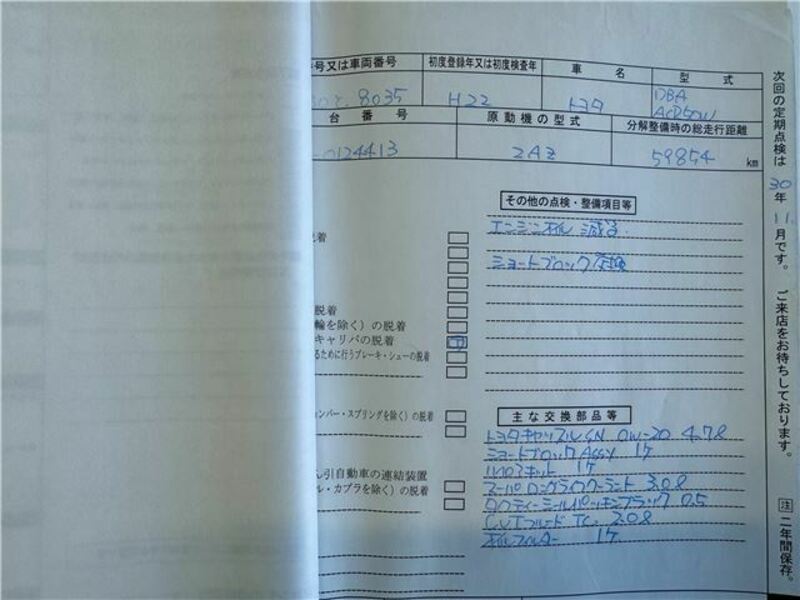 号又は車両番号 初度登録年又は初度検査年 車名 型式
8035 H22 トヨタ DBA
ACR50W
台番号 原動機の型式 分解整備時の総走行距離
-0124413 2AZ 59854 km
その他の点検・整備項目等
エンジンオイル 減る
ショートブロック交換
脱着
の脱着
輪を除く)の脱着
キャリパの脱着
るために行うブレーキ・シューの脱着
ンバー・スプリングを除く)の脱着
ん引自動車の連結装置
ル・カプラを除く)の脱着
主な交換部品等
トヨタキャッスルSN 0W-20 4.7ℓ
ショートブロックASSY 1ケ
キット 1ケ
スーパーロングライフクーラント 3.0ℓ
シールパッキンブラック 0.5
CVTフルード TC 2.0ℓ
オイルフィルター 1ケ
次回の定期点検は30年11月です。ご来店をお待ちしております。
注 二年間保存。